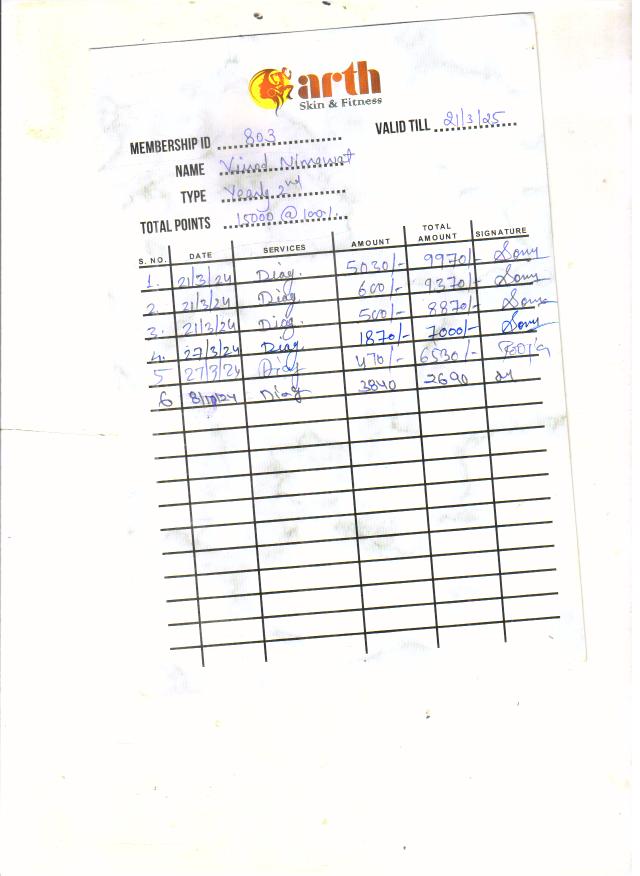 arth
Skin & Fitness
VALID TILL 21/3/25
MEMBERSHIP ID 803
NAME Vinod Nimawat
TYPE Yearly 2nd
TOTAL POINTS 15000 @ 100/.
S. NO. DATE SERVICES AMOUNT TOTAL AMOUNT SIGNATURE
1. 21/3/24 Diag. 5030/- 9970/- Sonu
2. 21/3/24 Diag. 600/- 9370/- Sonu
3. 21/3/24 Diag. 500/- 8870/- Sonu
4. 27/3/24 Diag. 1870/- 7000/- Sonu
5 27/3/24 Diag 470/- 6530/-
6 Diag 3840 2690